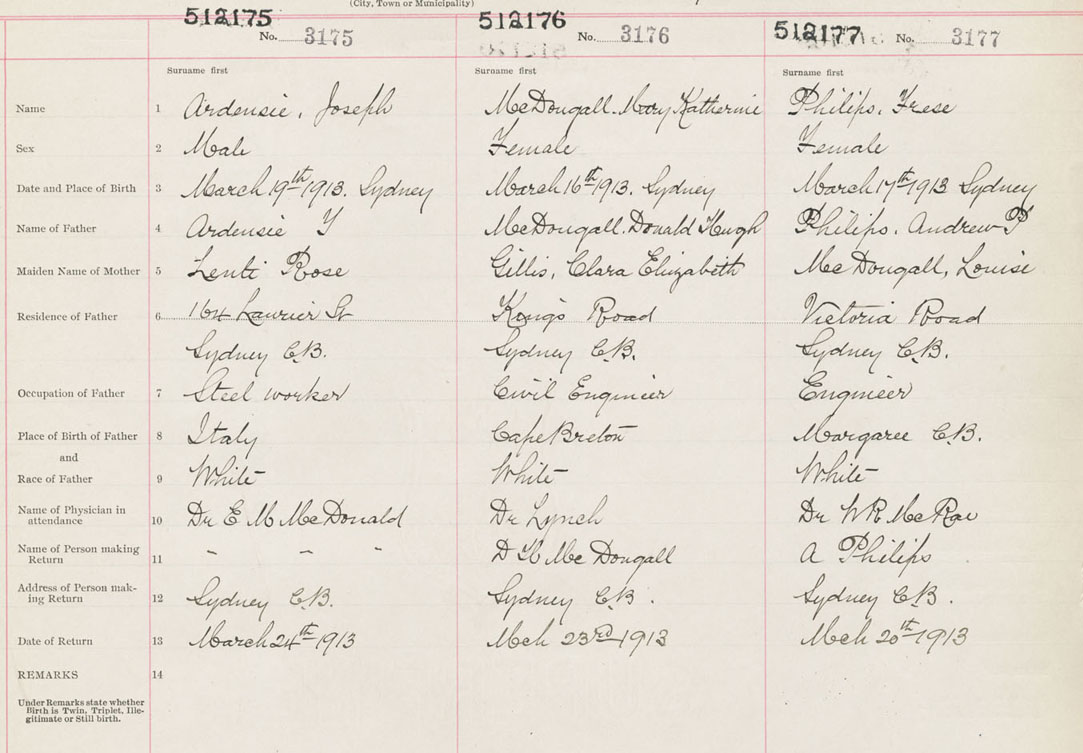 (City, Town or Municipality)
512175 512176 512177
No. 3175 No. 3176 No. 3177
Surname first Surname first Surname first
Name 1 Ardensie, Joseph McDougall. Mary Katherine Philips, Frese
Sex 2 Male Female Female
Date and Place of Birth 3 March 19th 1913. Sydney March 16th 1913. Sydney March 17th 1913 Sydney
Name of Father 4 Ardensie Y McDougall. Donald Hugh Philips. Andrew P
Maiden Name of Mother 5 Lenti Rose Gillis, Clara Elizabeth McDougall, Louise
Residence of Father 6 164 Laurier St Kings Road Victoria Road
Sydney C.B. Sydney C.B. Sydney C.B.
Occupation of Father 7 Steel worker Civil Engineer Engineer
Place of Birth of Father 8 Italy Cape Breton Margaree C.B.
and
Race of Father 9 White White White
Name of Physician in
attendance 10 Dr E M McDonald Dr Lynch Dr W R McRae
Name of Person making
Return 11 " " " D H McDougall A Philips
Address of Person mak-
ing Return 12 Sydney C.B. Sydney C.B. Sydney C.B.
Date of Return 13 March 24th 1913 Mch 23rd 1913 Mch 20th 1913
REMARKS 14
Under Remarks state whether
Birth is Twin, Triplet, Ille-
gitimate or Still birth.